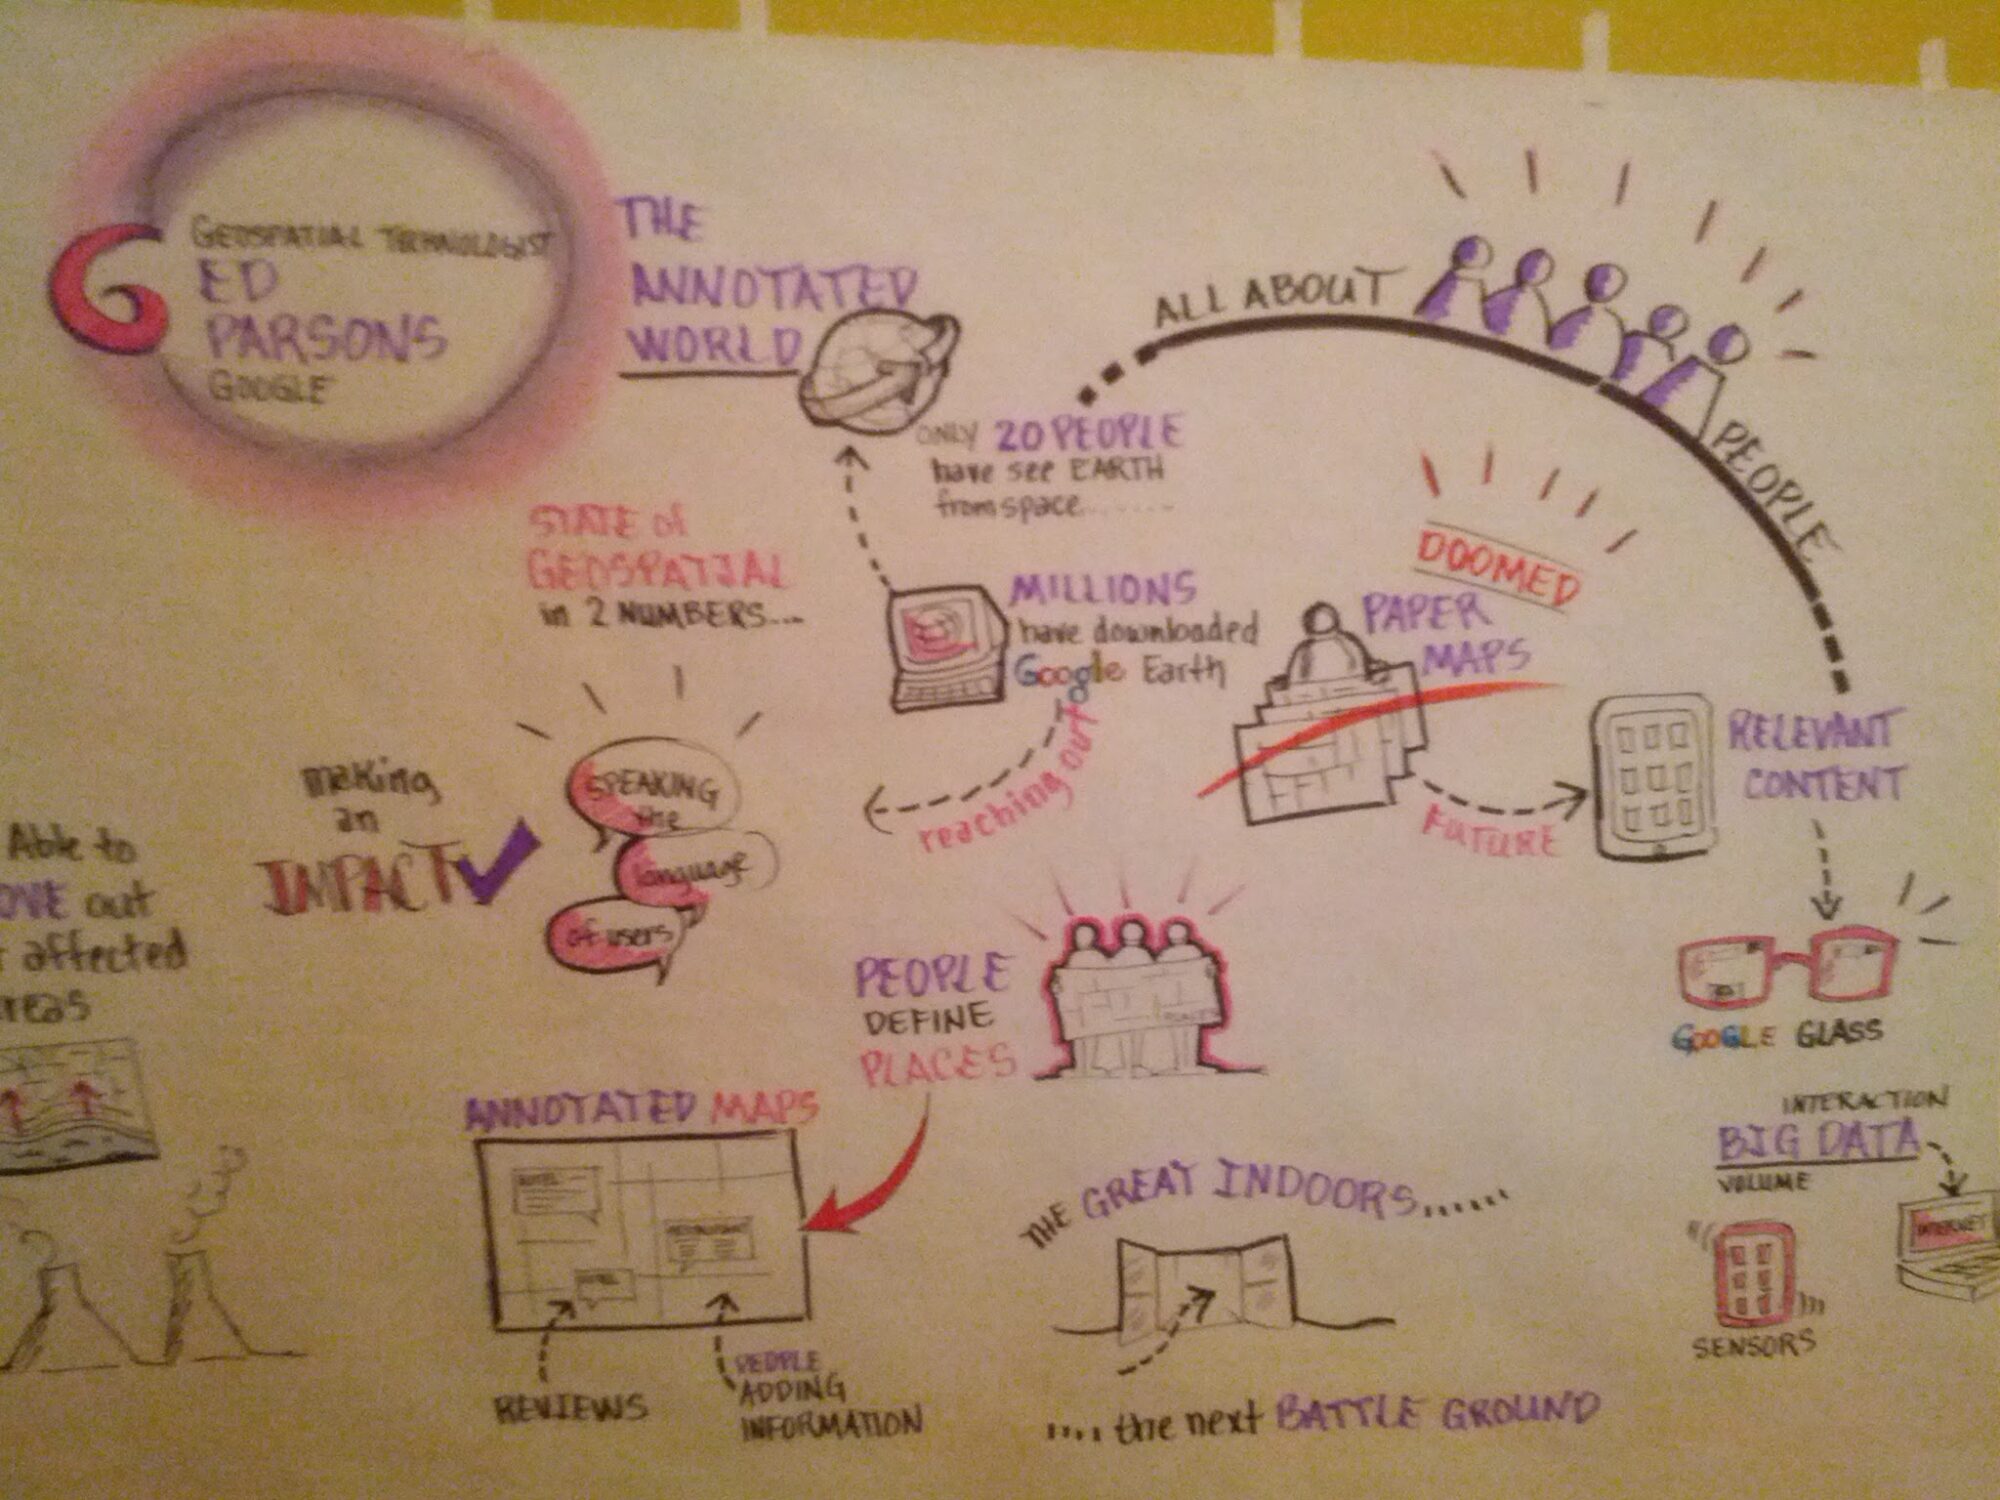 GEOSPATIAL TECHNOLOGIST
ED
PARSONS
GOOGLE
THE
ANNOTATED
WORLD
ONLY 20 PEOPLE
have see EARTH
from space........
ALL ABOUT
PEOPLE
STATE of
GEOSPATIAL
in 2 NUMBERS....
MILLIONS
have downloaded
Google Earth
reaching out
DOOMED
PAPER
MAPS
FUTURE
RELEVANT
CONTENT
GOOGLE GLASS
making
an
IMPACT
SPEAKING
the
language
of users
Able to
OVE out
affected
reas
PEOPLE
DEFINE
PLACES
ANNOTATED MAPS
HOTEL
RESTAURANT
REVIEWS
PEOPLE
ADDING
INFORMATION
THE GREAT INDOORS......
.... the next BATTLE GROUND
INTERACTION
BIG DATA
VOLUME
INTERNET
SENSORS